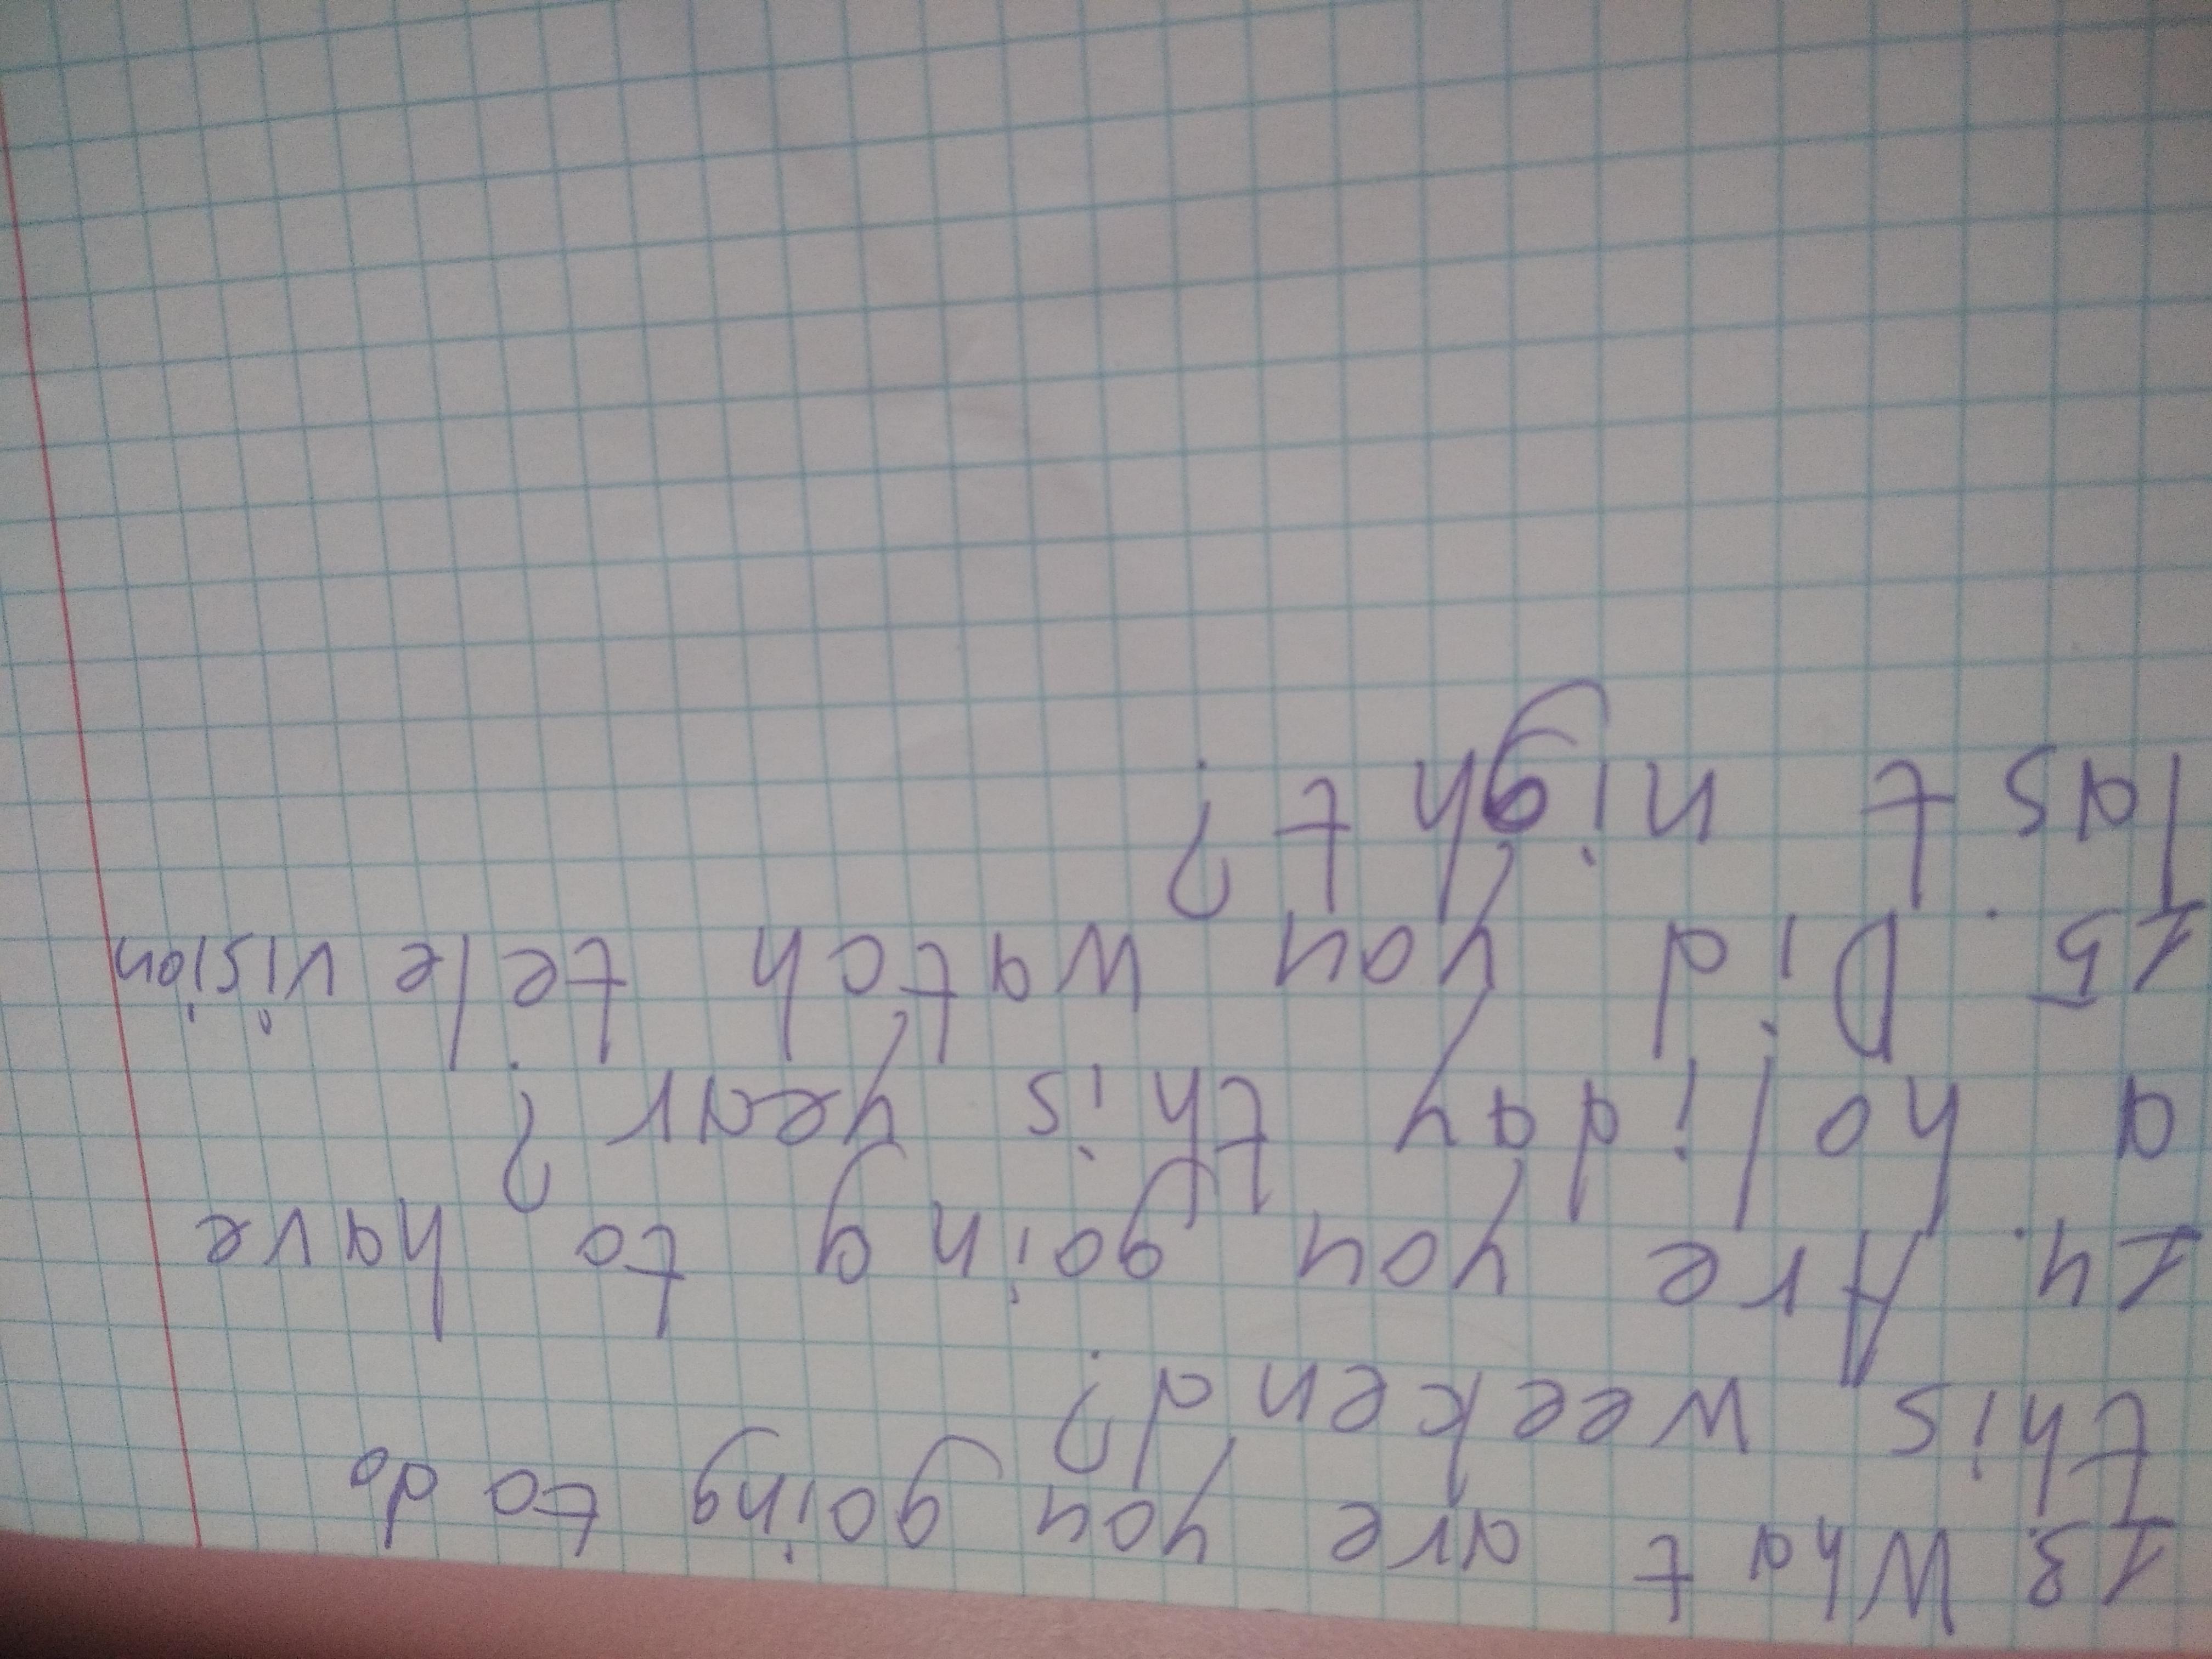 13. What are you going to do
this weekend?
14. Are you going to have
a holiday this year?
15. Did you watch television
last night?